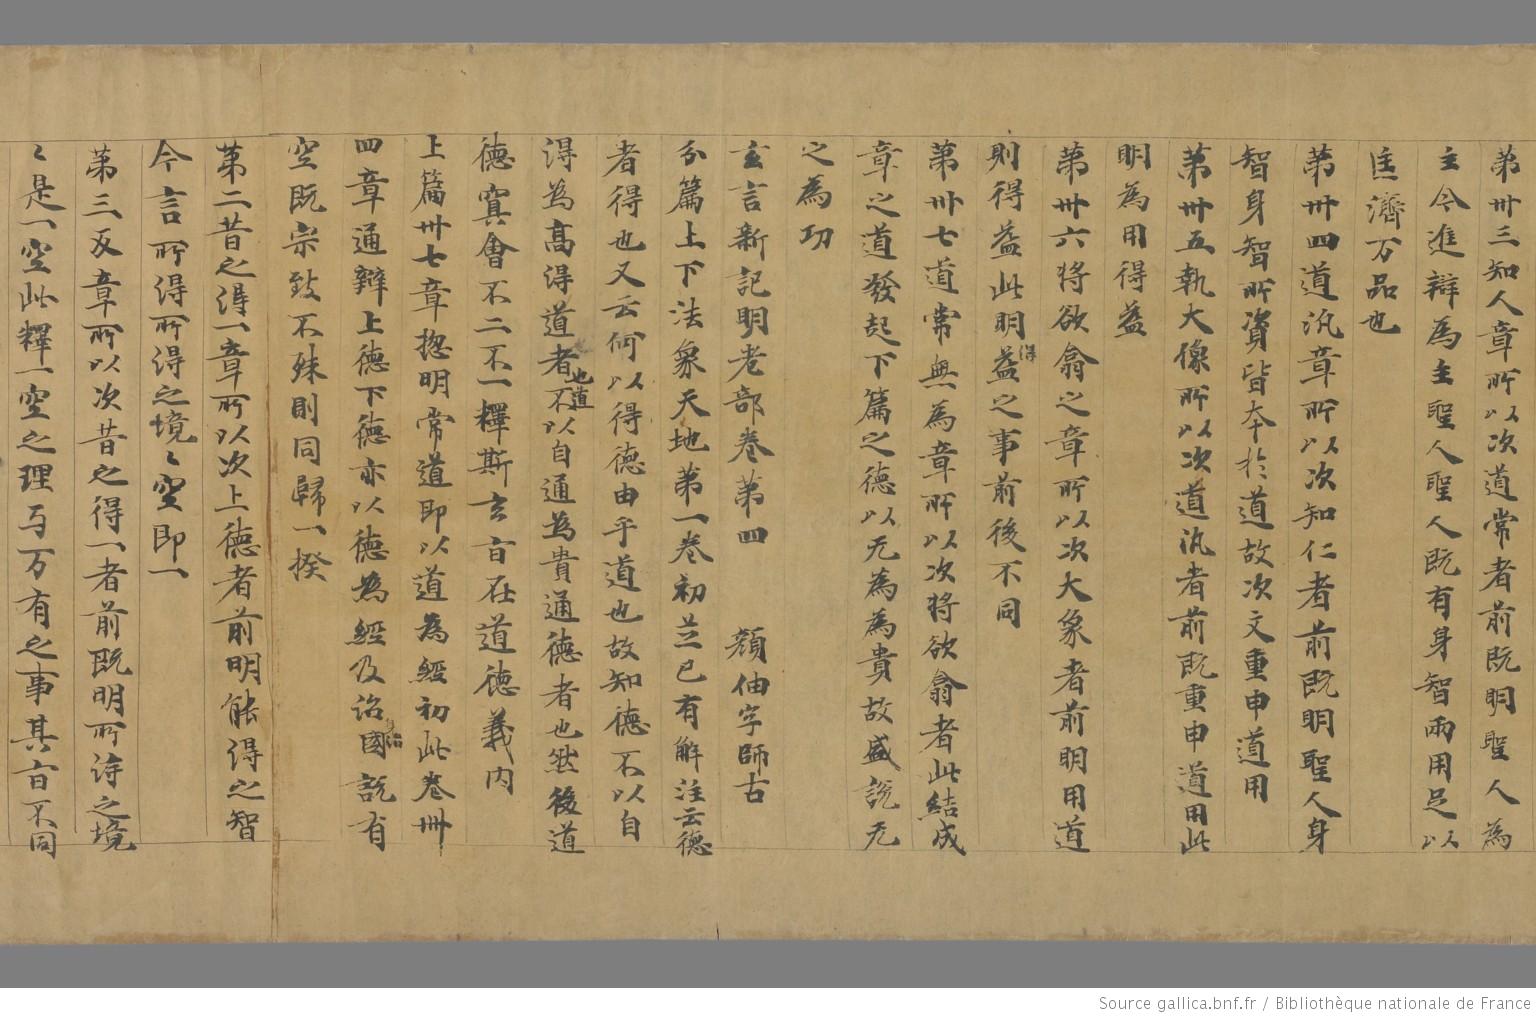 第卅三知人章所以次道常者前既明聖人為
主今進辯為主聖人聖人既有身智兩用足以
匡濟万品也
第卅四道汎章所以次知仁者前既明聖人身
智身智所資皆本於道故次文重申道用
第卅五執大像所以次道汎者前既重申道用此
明為用得益
第卅六将欲翕之章所以次大象者前明用道
則得益此明益得之事前後不同
第卅七道常無為章所以次将欲翕者此結成
章之道發起下篇之德以无為為貴故盛說无
之為功
玄言新記明老部卷第四 顏伷字師古
分篇上下法象天地第一卷初並已有解注云德
者得也又云何以得德由乎道也故知德不以自
得為高得道者也道不以自通為貴通德者也然後道
德冥會不二不一釋斯玄旨在道德義内
上篇卅七章揔明常道即以道為經初此卷卌
四章通辯上德下德亦以德為經及治國治身說有
空既宗致不殊則同歸一揆
第二昔之得一章所以次上德者前明能得之智
今言所得所得之境〻空即一
第三反章所以次昔之得一者前既明所詣之境
〻是一空此釋一空之理与万有之事其旨不同
Source gallica.bnf.fr / Bibliothèque nationale de France